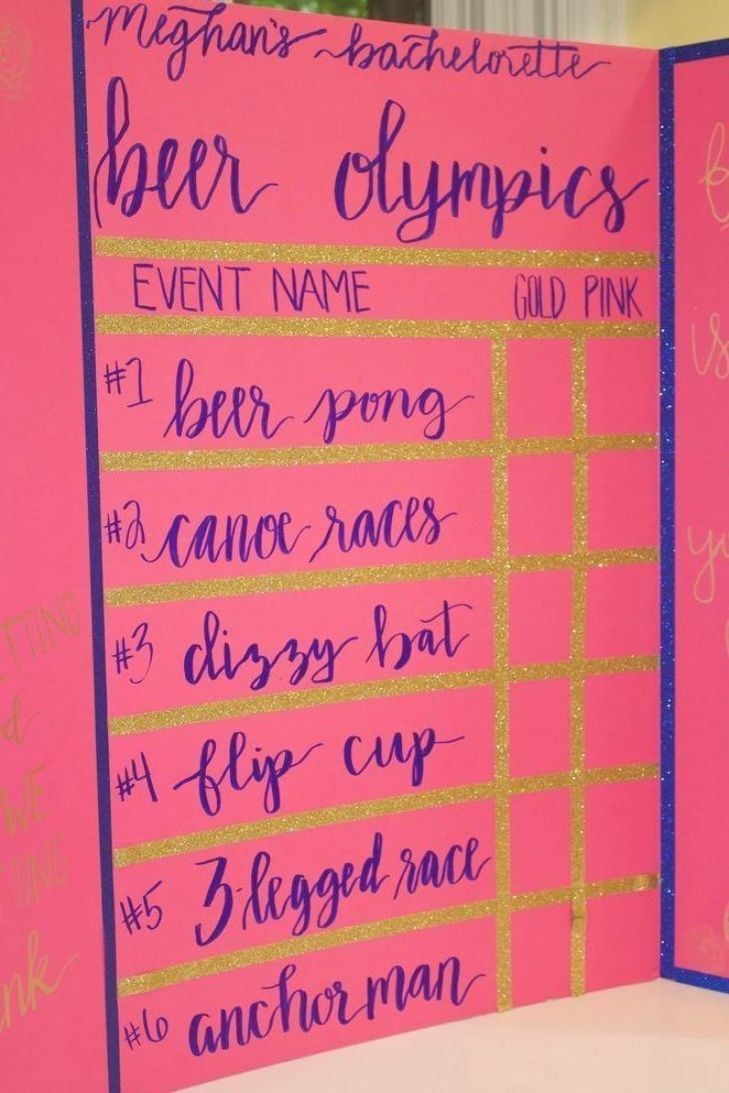 meghan's bachelorette
beer olympics
EVENT NAME GOLD PINK
#1 beer pong
#2 canoe races
#3 dizzy bat
#4 flip cup
#5 3-legged race
#6 anchorman
is
WE